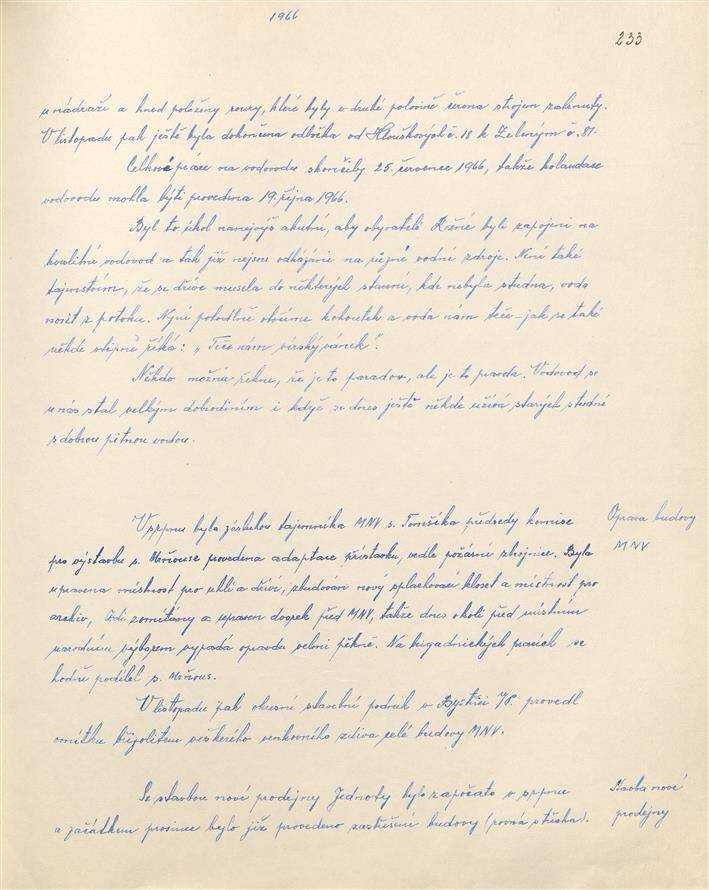 1966
233
u nádraží a hned položeny roury, které byly v druhé polovině června strojem zahrnuty.
V listopadu pak ještě byla dokončena odbočka od Hlouškových č. 18 k Zeleným č. 87.
Celkové práce na vodovodu skončily 25. července 1966, takže kolaudace
vodovodu mohla býti provedena 19. října 1966.
Byl to úkol nanejvýš akutní, aby obyvatelé Rožné byli zapojeni na
kvalitní vodovod a tak již nejsou odkázáni na různé vodní zdroje. Není také
tajemstvím, že se dříve musela do některých stavení, kde nebyla studna, voda
nosit z potoku. Nyní pohodlně otočíme kohoutek a voda nám teče - jak se také
někde vtipně říká: „Teče nám vírský vánek".
Někdo možná řekne, že je to paradox, ale je to pravda. Vodovod se
u nás stal velkým dobrodiním i když se dnes ještě někde užívá starých studní
s dobrou pitnou vodou.
V srpnu byla zásluhou tajemníka MNV s. Tomšíka předsedy komise
Oprava budovy
pro výstavbu s. provedena adaptace přístavku, vedle požární zbrojnice. Byla
MNV
upravena místnost pro uhlí a dříví, zbudován nový splachovací kloset a místnost pro
archiv, zdi zomítány a upraven dvorek před MNV, takže dnes okolí před místním
národním výborem vypadá opravdu velmi pěkně. Na brigádnických pracích se
hodně podílel s.
V listopadu pak okresní stavební podnik v Bystřici n/P. provedl
omítku břizolitem veškerého venkovního zdiva celé budovy MNV.
Se stavbou nové prodejny Jednoty bylo započato v srpnu
Stavba nové
a začátkem prosince bylo již provedeno zastřešení budovy (rovná střecha).
prodejny